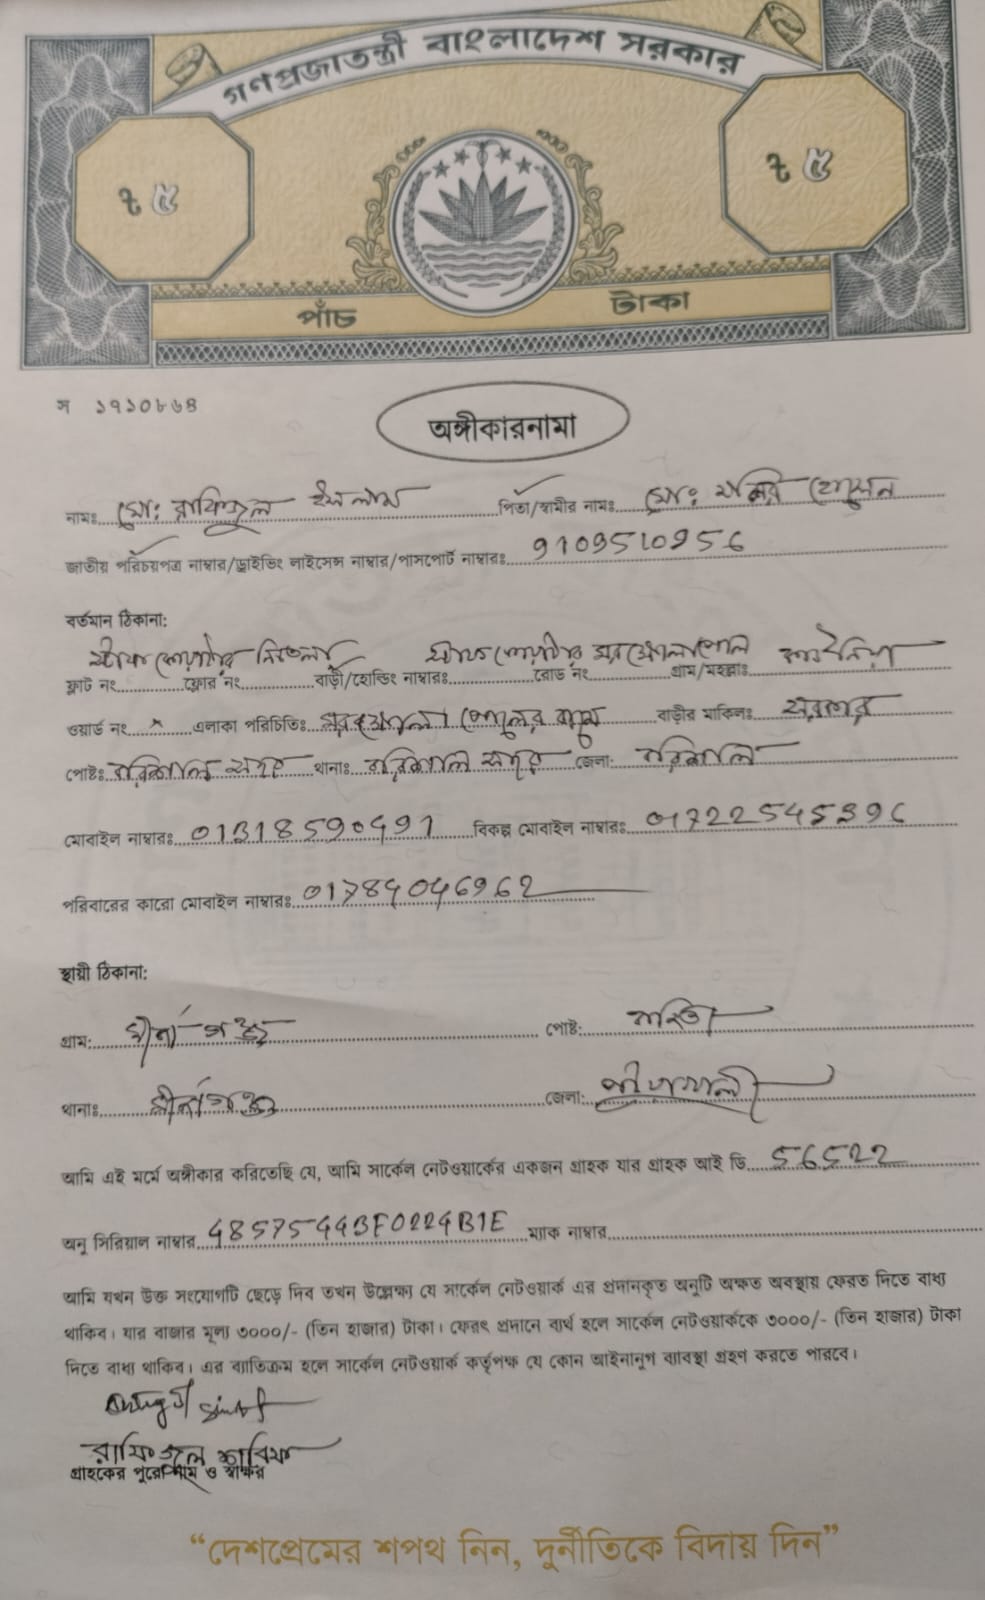 গণপ্রজাতন্ত্রী বাংলাদেশ সরকার
৳ ৫
৳ ৫
পাঁচ টাকা
স ১৭১০৮৬৪
অঙ্গীকারনামা
নামঃ মোঃ রাফিজুল ইসলাম পিতা/স্বামীর নামঃ মোঃ হোসেন
জাতীয় পরিচয়পত্র নাম্বার/ড্রাইভিং লাইসেন্স নাম্বার/পাসপোর্ট নাম্বারঃ
বর্তমান ঠিকানা:
ফ্লাট নং ফ্লোর নং বাড়ী/হোল্ডিং নাম্বারঃ রোড নং গ্রাম/মহল্লাঃ কাউনিয়া
ওয়ার্ড নং × এলাকা পরিচিতিঃ পোলের বাড়ীর মালিকঃ সরকার
পোষ্টঃ বরিশাল সদর থানাঃ বরিশাল সদর জেলা: বরিশাল
মোবাইল নাম্বারঃ বিকল্প মোবাইল নাম্বারঃ
পরিবারের কারো মোবাইল নাম্বারঃ
স্থায়ী ঠিকানা:
গ্রাম: মীর্জাগঞ্জ পোষ্ট:
থানাঃ মীর্জাগঞ্জ জেলা: পটুয়াখালী
আমি এই মর্মে অঙ্গীকার করিতেছি যে, আমি সার্কেল নেটওয়ার্কের একজন গ্রাহক যার গ্রাহক আই ডি 56522
অনু সিরিয়াল নাম্বার 48575444BF0224B1E ম্যাক নাম্বার
আমি যখন উক্ত সংযোগটি ছেড়ে দিব তখন উল্লেক্ষ্য যে সার্কেল নেটওয়ার্ক এর প্রদানকৃত অনুটি অক্ষত অবস্থায় ফেরত দিতে বাধ্য
থাকিব। যার বাজার মূল্য ৩০০০/- (তিন হাজার) টাকা। ফেরৎ প্রদানে ব্যর্থ হলে সার্কেল নেটওয়ার্ককে ৩০০০/- (তিন হাজার) টাকা
দিতে বাধ্য থাকিব। এর ব্যতিক্রম হলে সার্কেল নেটওয়ার্ক কর্তৃপক্ষ যে কোন আইনানুগ ব্যবস্থা গ্রহণ করতে পারবে।
রাফিজুল
গ্রাহকের পুরো নাম ও স্বাক্ষর
“দেশপ্রেমের শপথ নিন, দুর্নীতিকে বিদায় দিন”